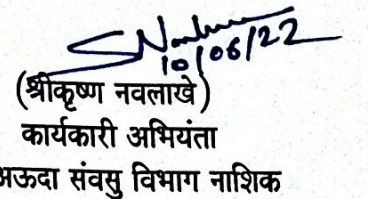 10/06/22
(श्रीकृष्ण नवलाखे)
कार्यकारी अभियंता
अऊदा संवसु विभाग नाशिक